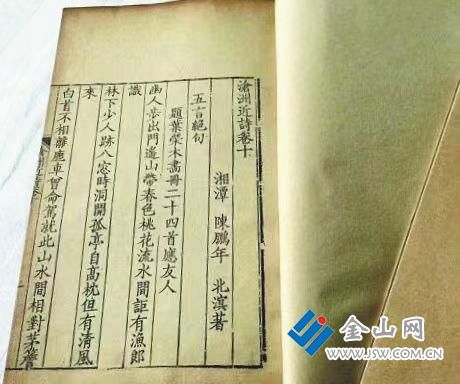 滄洲近詩卷十
湘潭 陳鵬年 北溟著
五言絕句
題葉榮木畵冊二十四首應友人
幽人步出門遙山帶春色桃花流水間詎有漁郎
識
林下少人跡八窓時洞開孤亭自高枕但有清風
來
白首不相離鹿車曾命駕就此山水間相對茅簷
金山网
www.JSW.com.cn